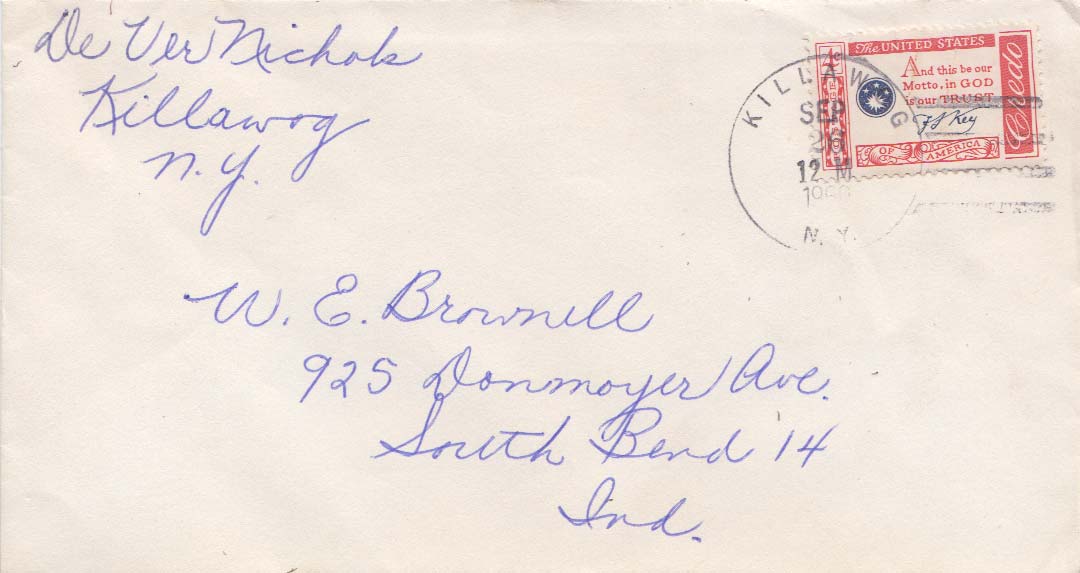 De Ver Nichols
Killawog
N.Y.
KILLAWOG
SEP
26
12 M
N.Y.
4¢
POSTAGE
The UNITED STATES
And this be our
Motto, in GOD
is our TRUST
F S Key
OF AMERICA
Credo
W. E. Brownell
925 Donmoyer Ave.
South Bend 14
Ind.